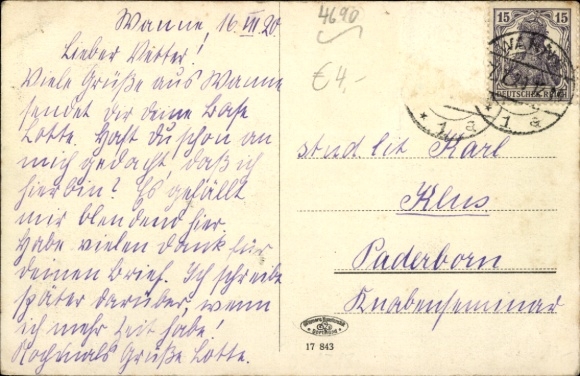 Wanne, 16. VIII 20.
Lieber Vetter!
Viele Grüße aus Wanne
sendet dir deine Base
Lotte. Hast du schon an
mich gedacht, daß ich
hier bin? Es gefällt
mir blendend hier
Habe vielen Dank für
deinen Brief. Ich schreibe
später darüber, wenn
ich mehr Zeit habe!
Nochmals Grüße Lotte.
4690
€ 4,-
15 15
DEUTSCHES REICH
* 1 a
* 1 a
stud. lit Karl
Klus
Paderborn
Knabenseminar
17 843